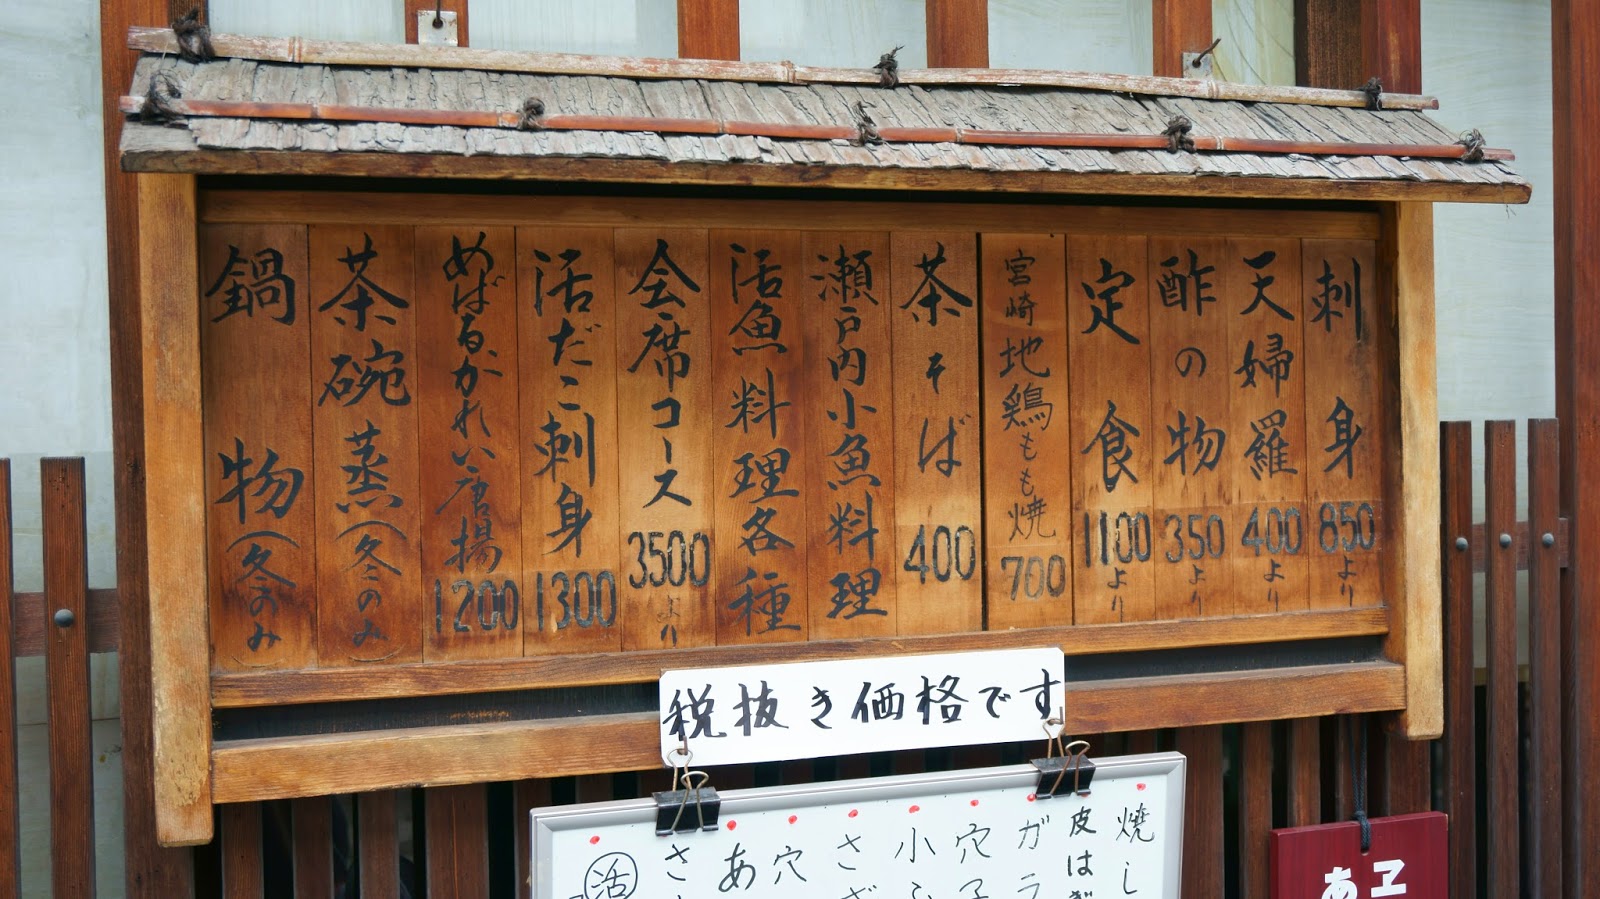 刺身 850より
天婦羅 400より
酢の物 350より
定食 1100より
宮崎地鶏もも焼 700
茶そば 400
瀬戸内小魚料理
活魚料理各種
会席コース 3500より
活だこ刺身 1300
めばるかれい唐揚 1200
茶碗蒸(冬のみ)
鍋物(冬のみ)
税抜き価格です
焼し
皮はぎ
ガラ
穴子
小
さざ
穴
あ
さ
活